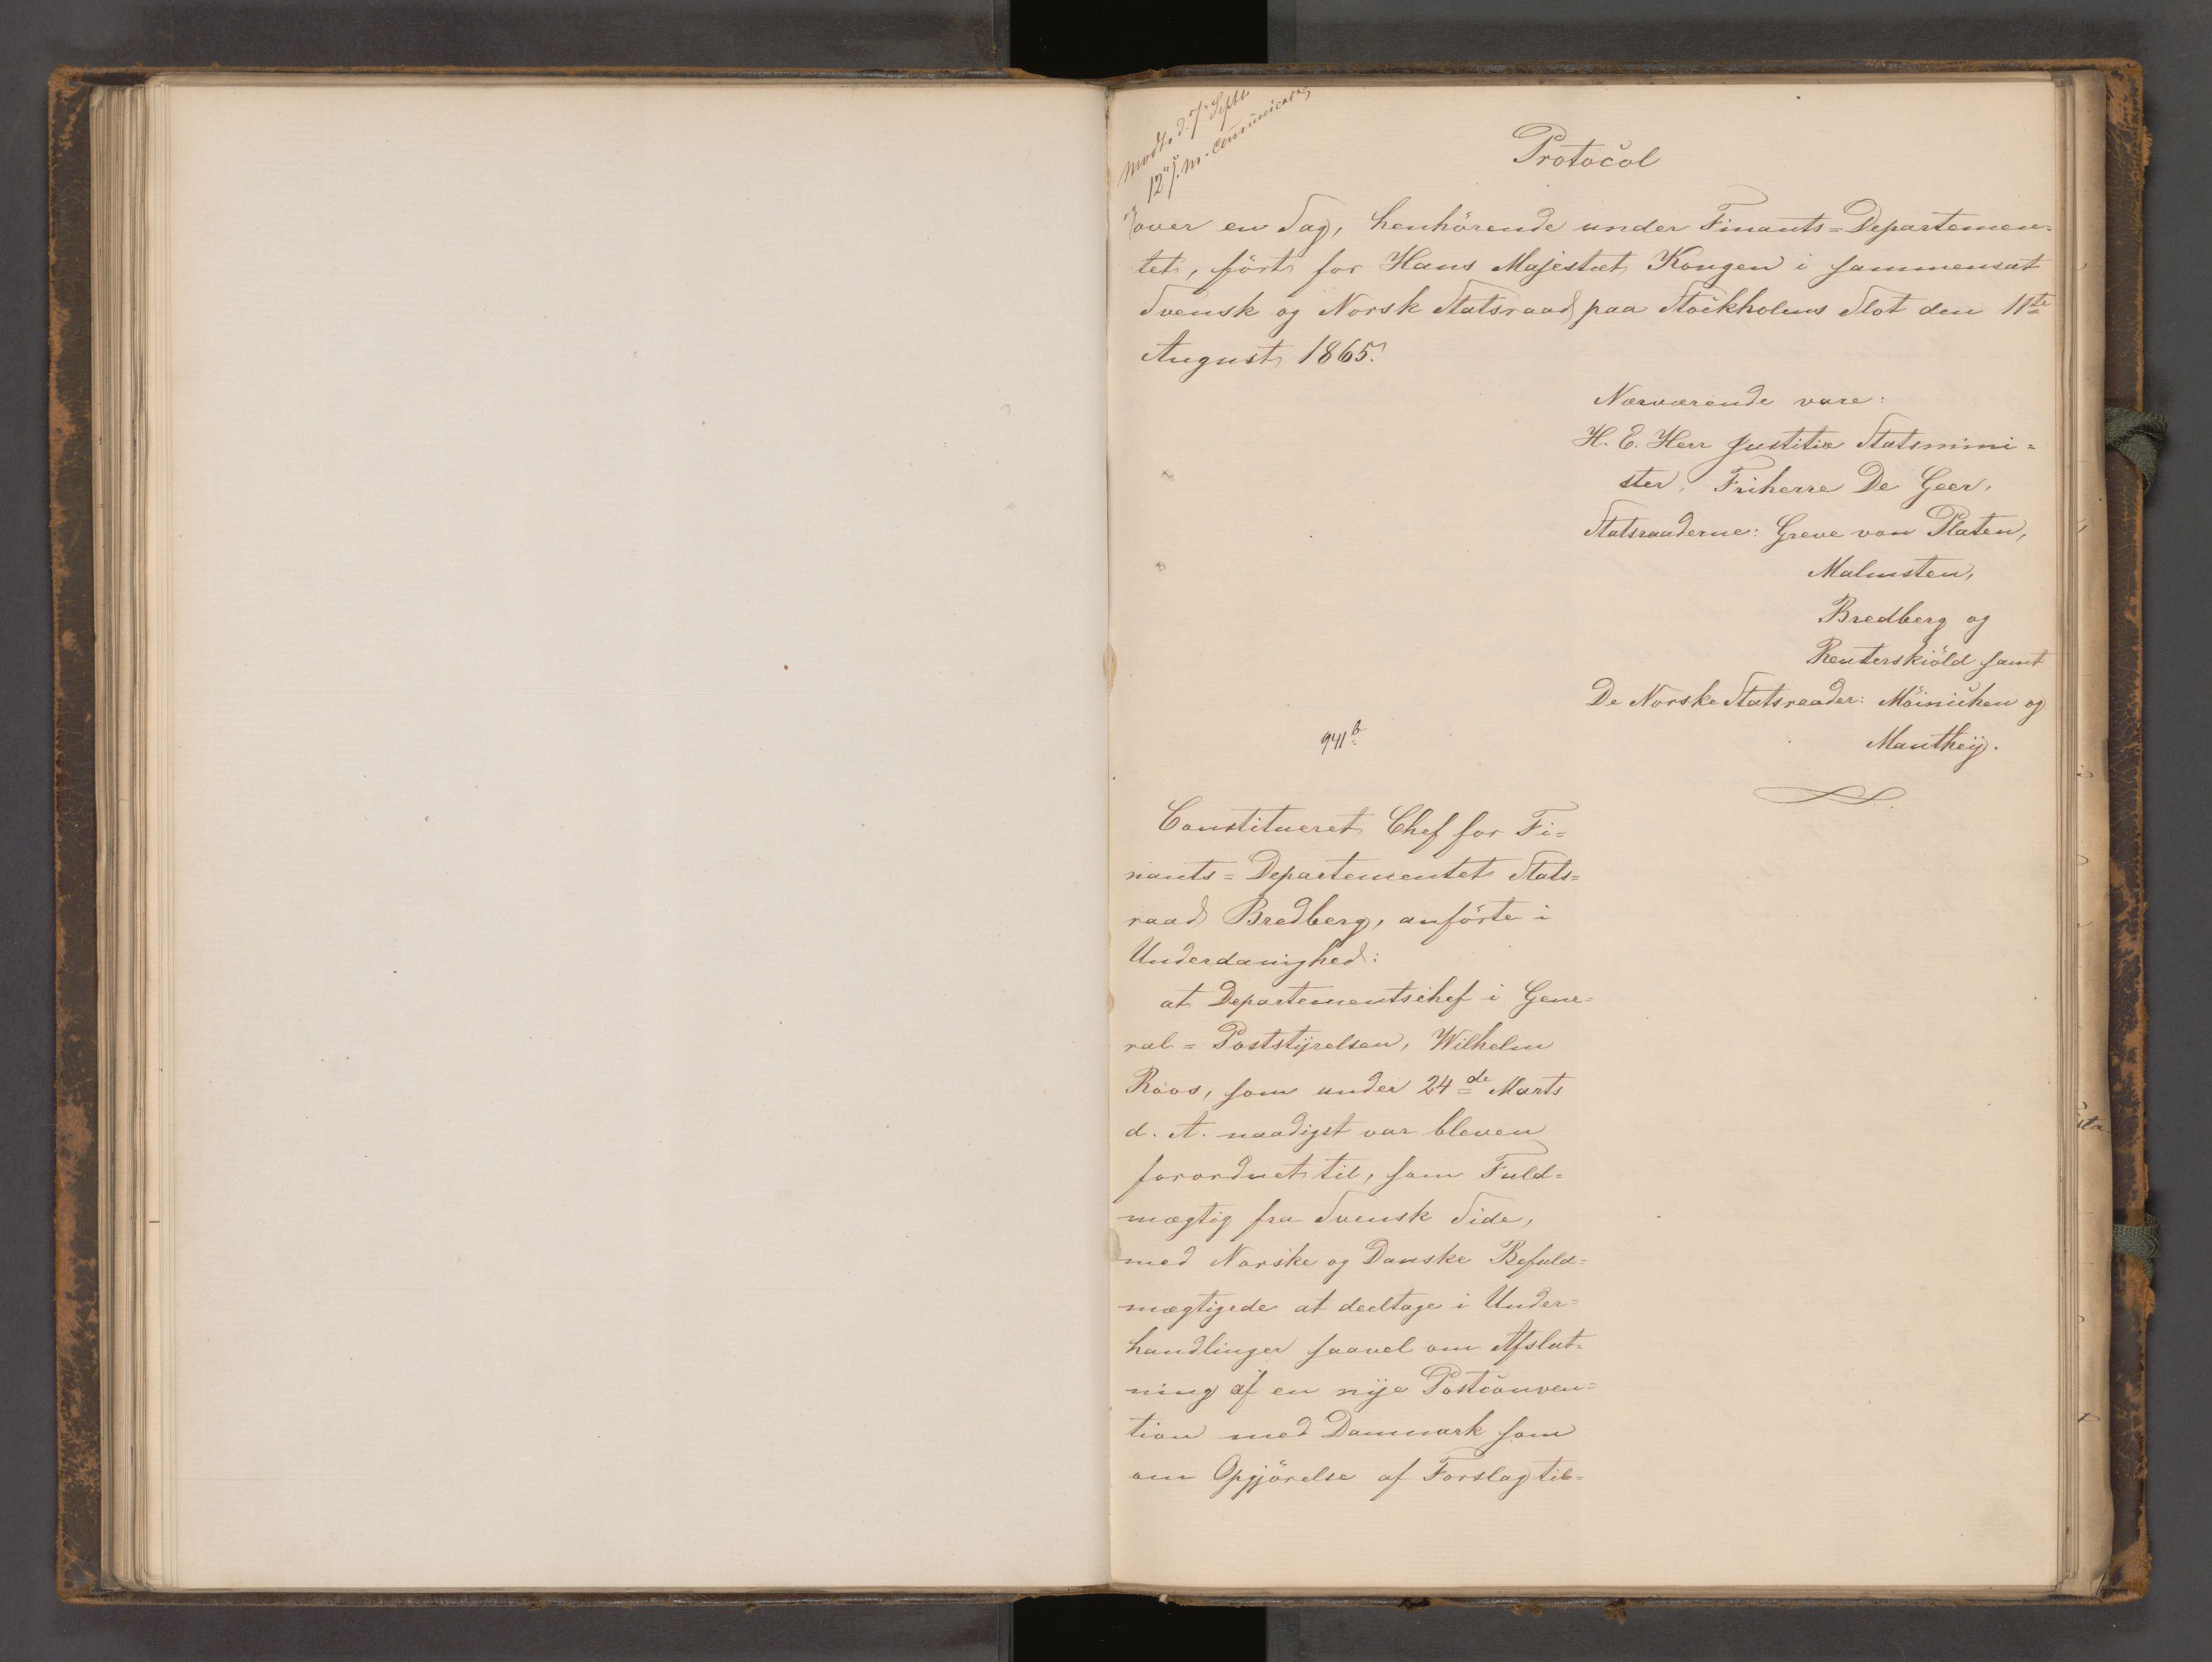 Modt. d. 7 Septbr.
12 s. M. Communicat.
Protocol
over en Sag, henhörende under Finants=Departemen=
tet, fört for Hans Majestæt Kongen i sammensat
Svensk og Norsk Statsraad paa Stockholms Slot den 11te
August 1865.
Nærværende vare:
H. E. Herr Justitiæ Statsmini=
ster, Friherre De Geer,
Statsraaderne: Greve von Platen,
Malmsten,
Bredberg og
Reuterskiöld samt
De Norske Statsraader: Möinichen og
Manthey.
941 b
Constitueret Chef for Fi=
nants=Departementet Stats=
raad Bredberg, anförte i
Underdanighed:
at Departementschef i Gene=
ral=Poststyrelsen, Wilhelm
Roos, som under 24de Marts
d. A. naadigst var bleven
forordnet til, som Fuld=
mægtig fra Svensk Side,
med Norske og Danske Befuld=
mægtigede at deeltage i Under=
handlinger saavel om Afslut=
ning af en nye Postconven=
tion med Danmark som
om Opgjörelse af Forslag til=